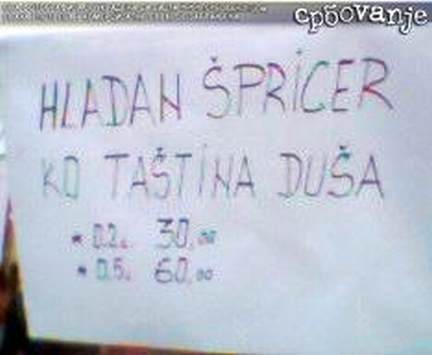 србovanje
HLADAN ŠPRICER
KO TAŠTINA DUŠA
* 0.2L 30,00
* 0.5L 60,00